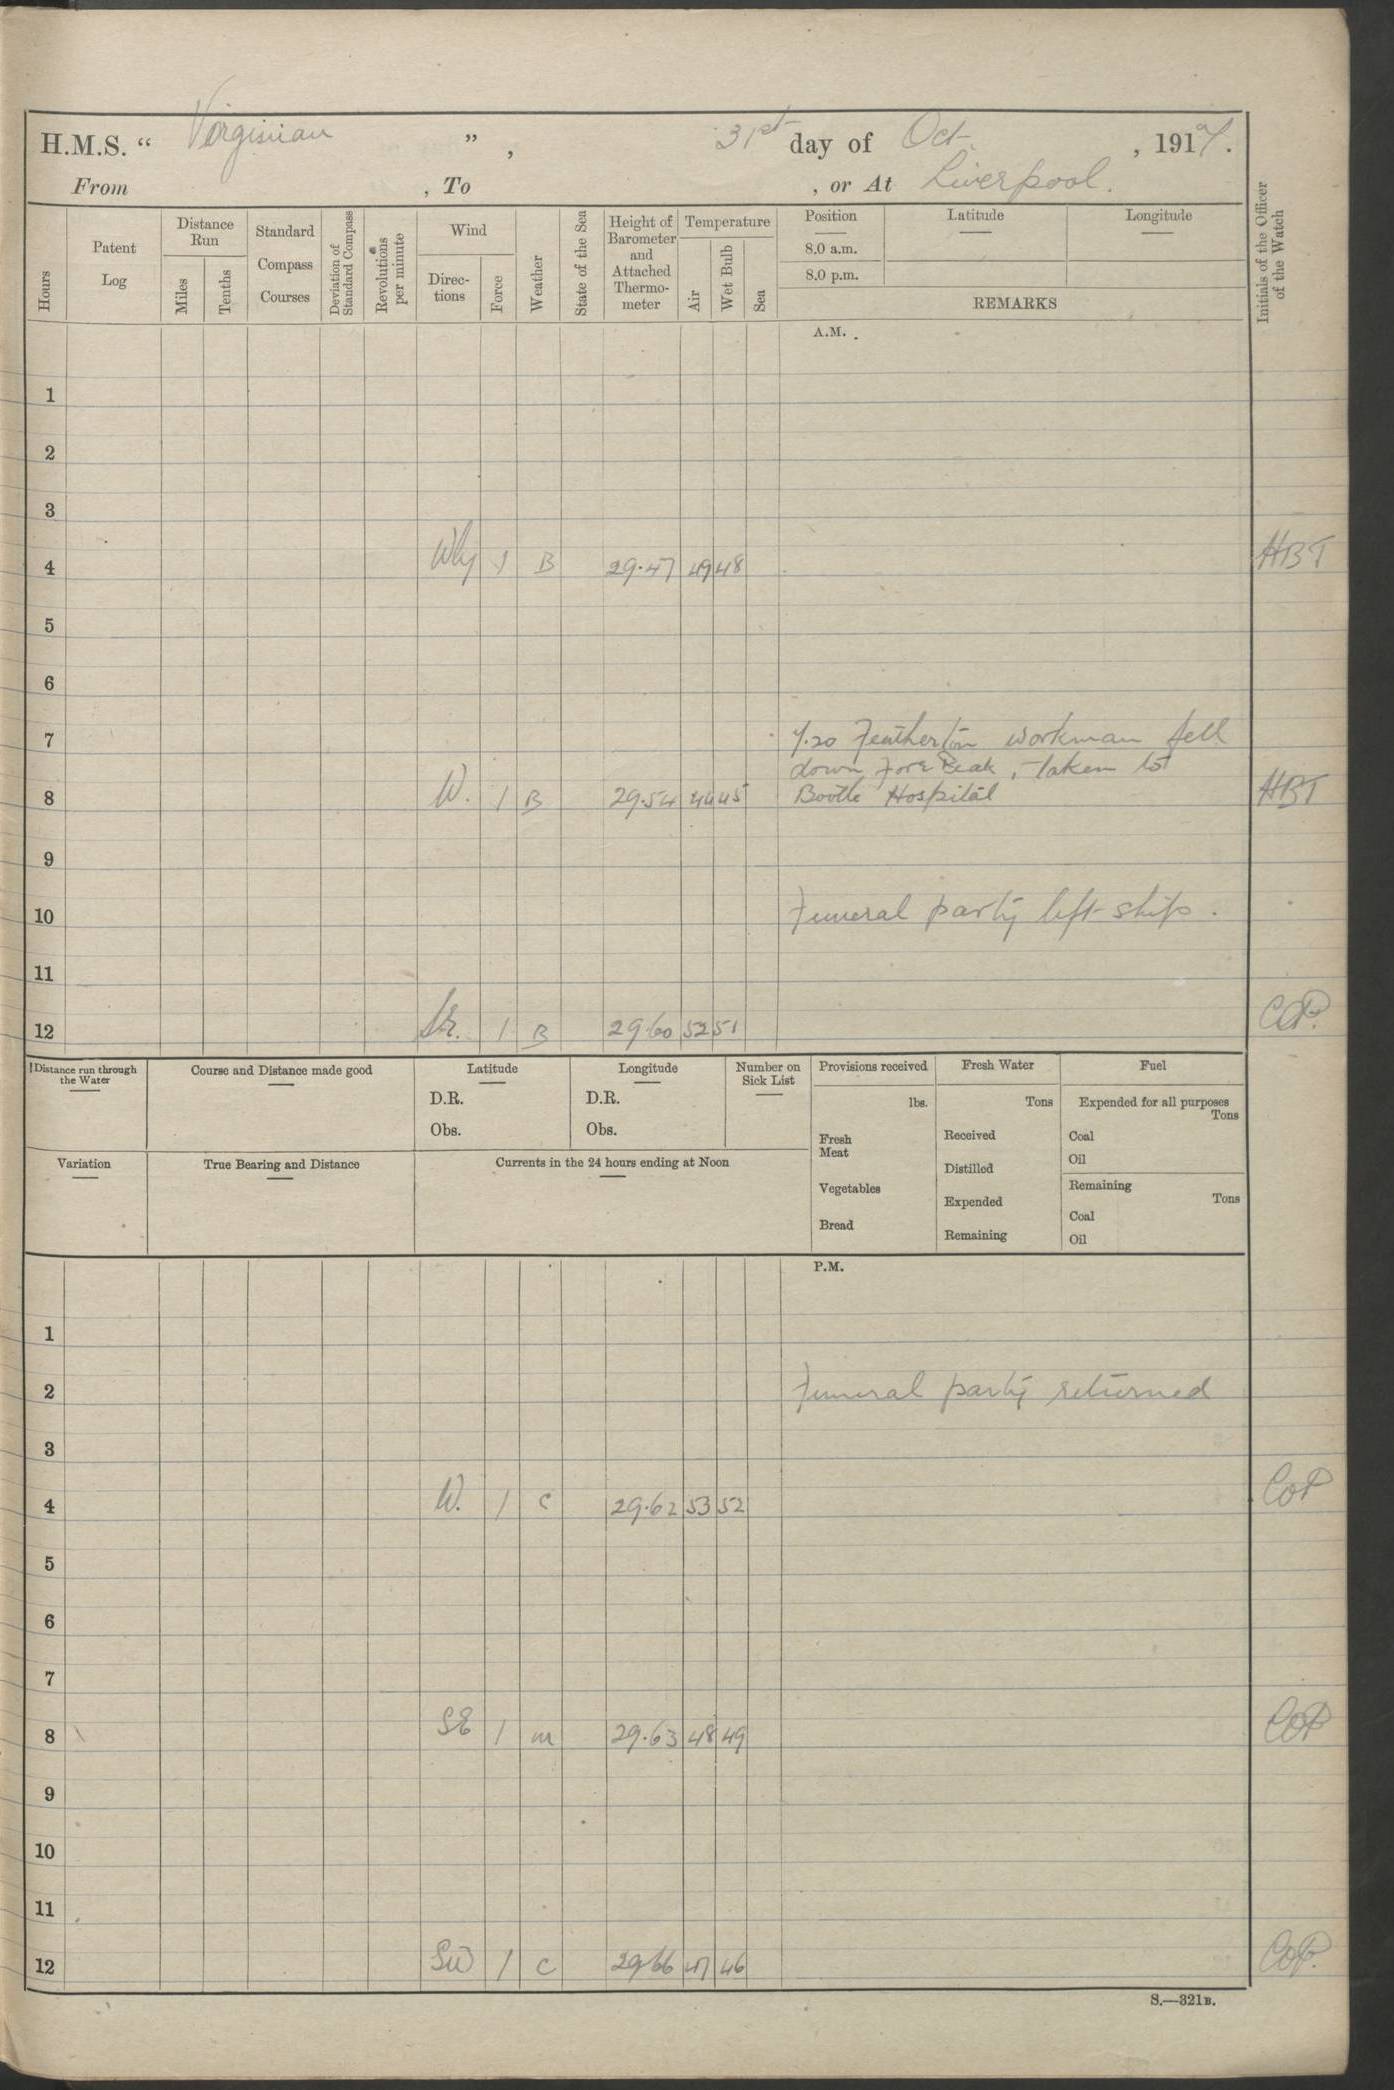 H.M.S. “ Virginian ” , 31st day of Oct. , 191
From , To , or At Liverpool.
Hours
Patent Log
Distance Run
Miles
Tenths
Standard Compass Courses
Deviation of Standard Compass
Revolutions per minute
Wind
Direc-tions
Force
Weather
State of the Sea
Height of Barometer and Attached Thermo-meter
Temperature
Air
Wet Bulb
Sea
Position
8.0 a.m.
8.0 p.m.
Latitude
Longitude
REMARKS
Initials of the Officer of the Watch
A.M.
1
2
3
4 Wly 1 B 29.47 49 48 HBT
5
6
7 7.20 workman fell
down Fore Peak, taken to
8 W. 1 B 29.54 44 45 Bootle Hospital HBT
9
10 Funeral party left ship.
11
12 1 B 29.60 52 51 COP.
Distance run through the Water
Course and Distance made good
Latitude
D.R.
Obs.
Longitude
D.R.
Obs.
Number on Sick List
Provisions received
lbs.
Fresh Meat
Vegetables
Bread
Fresh Water
Tons
Received
Distilled
Expended
Remaining
Fuel
Expended for all purposes
Tons
Coal
Oil
Remaining
Tons
Coal
Oil
Variation
True Bearing and Distance
Currents in the 24 hours ending at Noon
P.M.
1
2 Funeral party returned
3
4 W. 1 c 29.62 53 52 COP
5
6
7
8 SE 1 m 29.63 48 49 COP
9
10
11
12 SW 1 c 29.66 47 46 COP.
S.—321B.